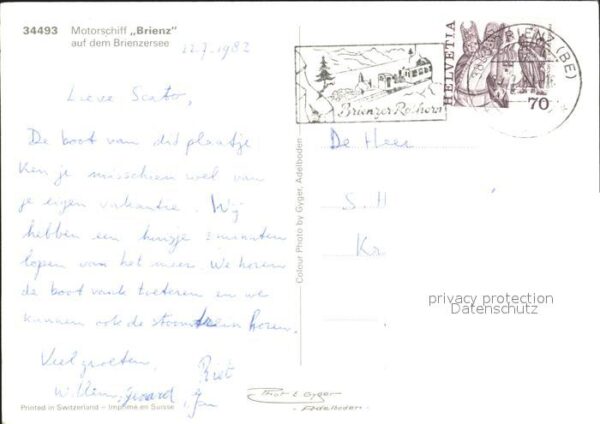 34493 Motorschiff „Brienz"
auf dem Brienzersee
22.7.1982
Lieve
De boot van dit plaatje
Ken je misschien wel van
je eigen vakantie. Wij
hebben een huisje 2 minuten
lopen van het meer. We horen
de boot vaak toeteren en we
kunnen ook de stoomtrein horen.
Veel groeten, Riet
Willem, Gerard,
Jan
Printed in Switzerland – Imprimé en Suisse
Colour Photo by Gyger, Adelboden
Brienzer Rothorn
BRIENZ (BE)
HELVETIA
70
De Heer
S. H
Kr
privacy protection
Datenschutz
Phot E Gyger
Adelboden